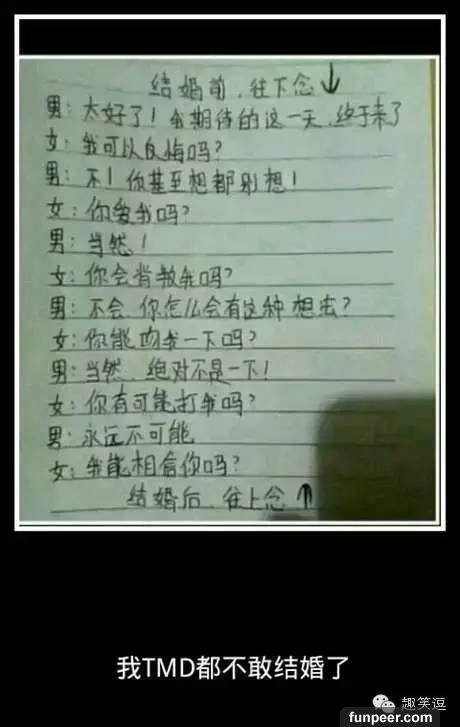 结婚前,往下念↓
男:太好了!我期待的这一天,终于来了
女:我可以反悔吗?
男:不!你甚至想都别想!
女:你爱我吗?
男:当然!
女:你会背叛我吗?
男:不会,你怎么会有这种想法?
女:你能吻我一下吗?
男:当然,绝对不是一下!
女:你有可能打我吗?
男:永远不可能
女:我能相信你吗?
结婚后,往上念↑
我TMD都不敢结婚了
趣笑逗
funpeer.com